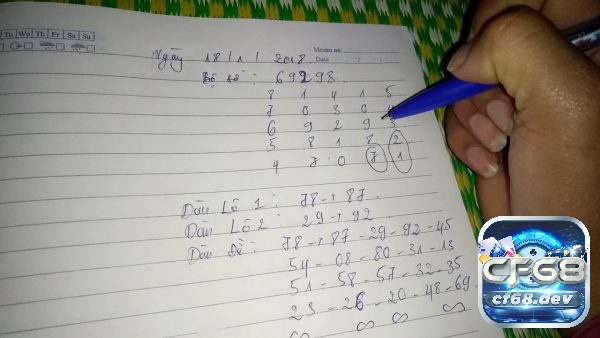 Tu We Th Fr Sa Su
Memo no.
Date / /
Ngày 18 / 1 / 2018.
Bộ số : 699293.
8 1 4 1 5
7 0 3 0 4
6 9 2 9 3
5 8 1 8 2
4 7 0 7 1
Dàn Lô 1 : 78 → 87.
Dàn Lô 2 : 29 → 92.
Dàn Đề : 78 → 87 - 29 - 92 - 45
54 - 08 - 80 - 31 - 13
51 - 58 - 57 - 32 - 35
23 - 26 - 20 - 48 - 69
CF68
cf68.dev